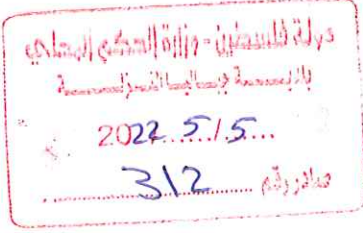 دولة فلسطين - وزارة الحكم المحلي
2022/5/5
صادر رقم 312